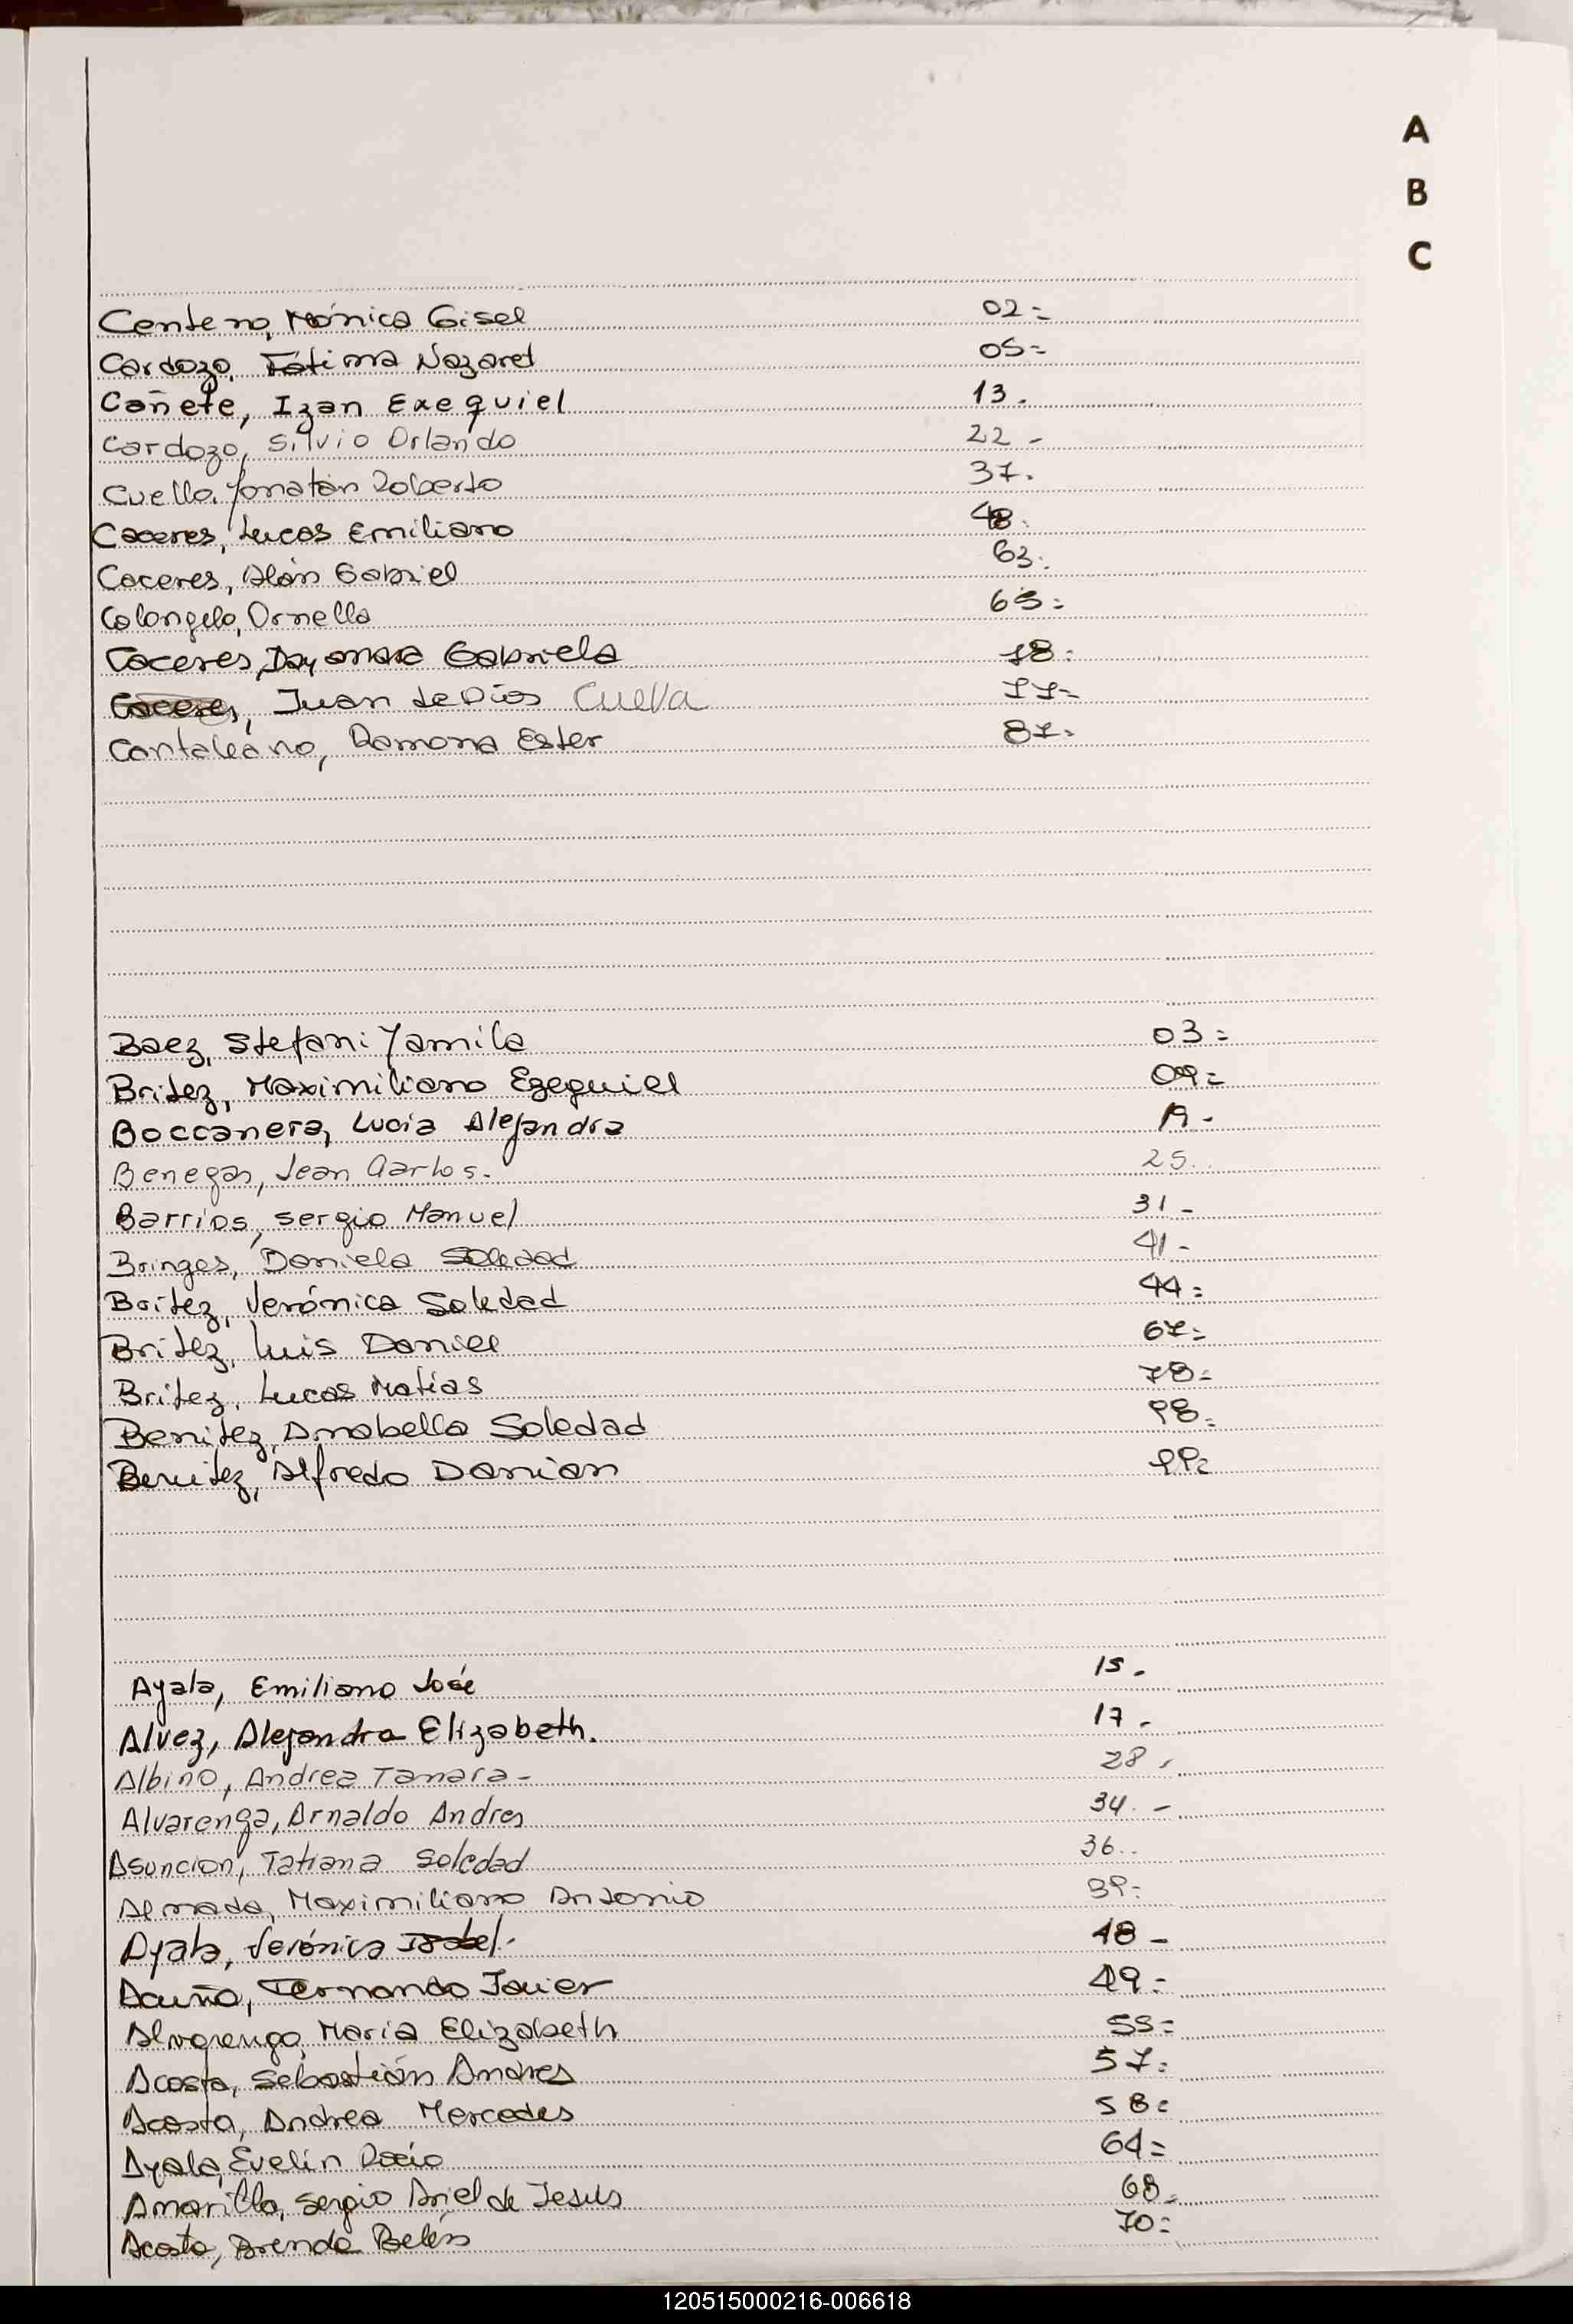 A
B
C
Centeno, Mónica Gisel 02=
Cardozo, Fátima Nazaret 05=
Cañete, Izan Exequiel 13.
Cardozo, Silvio Orlando 22-
Cuello, Yonatan Roberto 37.
Caceres, Lucas Emiliano 48:
Caceres, Alán Gabriel 63:
Colongelo, Ornella 65=
Caceres, Dayanara Gabriela 78=
Caceres, Juan de Dios Cuella 77=
Cantaleano, Ramona Ester 87.
Baez, Stefani Yamila 03=
Britez, Maximiliano Ezequiel 09=
Boccanera, Lucia Alejandra 19-
Benegas, Jean Carlos. 25..
Barrios, Sergio Manuel 31-
Bringes, Daniela Soledad 41-
Britez, Verónica Soledad 44=
Britez, Luis Daniel 67=
Britez, Lucas Matías 78=
Benitez, Anabella Soledad 98=
Benitez, Alfredo Damian 99=
Ayala, Emiliano José 15.
Alvez, Alejandra Elizabeth. 17-
Albino, Andrea Tamara- 28.
Alvarenga, Arnaldo Andres 34.-
Asuncion, Tatiana Soledad 36..
Almada, Maximiliano Antonio 39=
Ayala, Verónica Isabel. 48-
Acuña, Fernando Javier 49=
Alvarenga, María Elizabeth 55=
Acosta, Sebastián Andres 57=
Acosta, Andrea Mercedes 58=
Ayala, Evelin Rocío 64=
Amarilla, Sergio Ariel de Jesus 68=
Acosta, Brenda Belén 70=
120515000216-006618